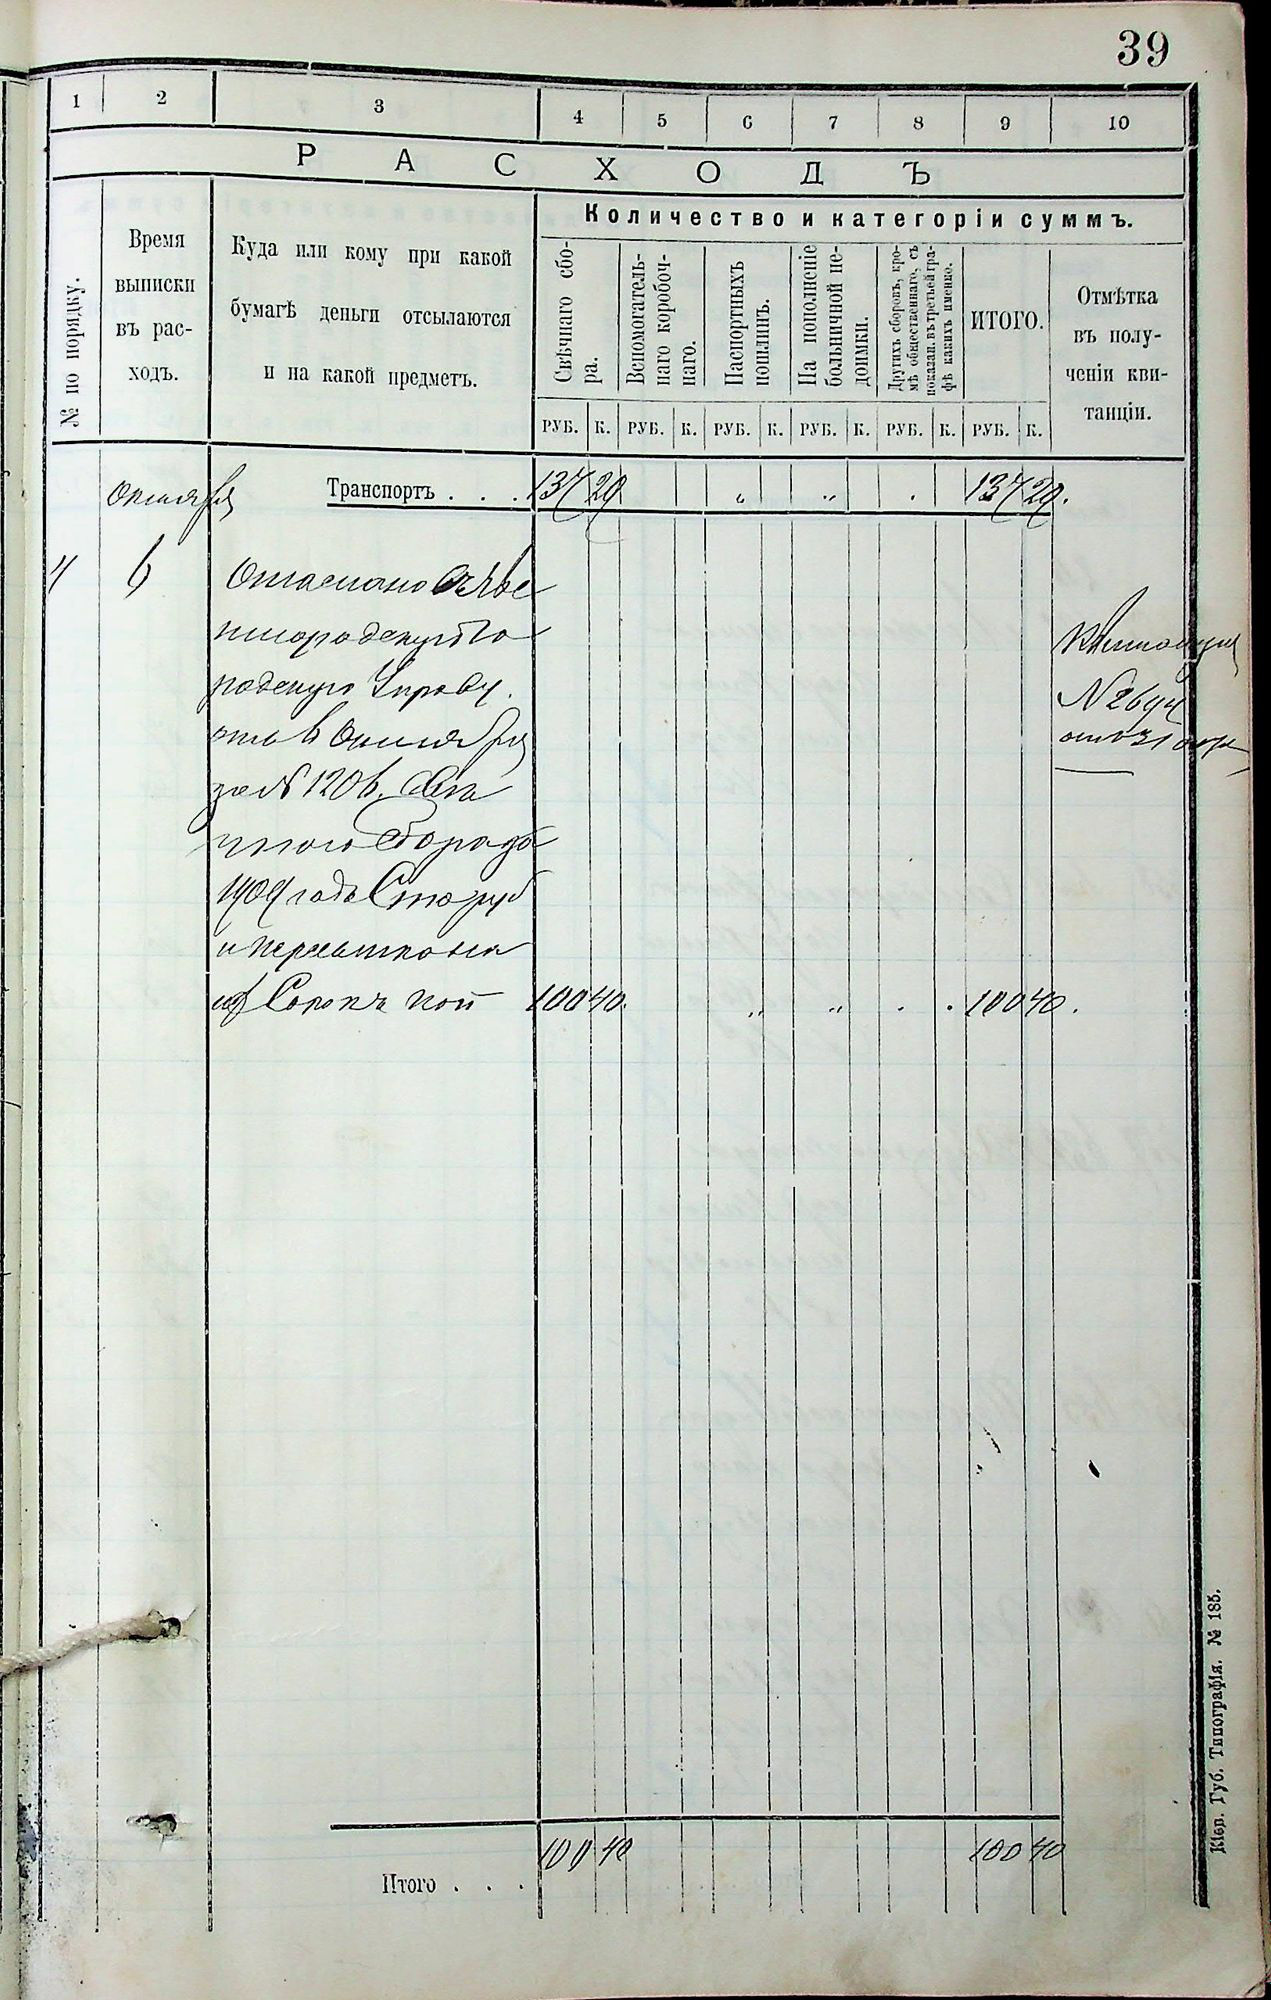 39
1 2 3 4 5 6 7 8 9 10
РАСХОДЪ
Количество и категоріи суммъ.
№ по порядку.
Время
выписки
въ рас-
ходъ.
Куда или кому при какой
бумагѣ деньги отсылаются
и на какой предметъ.
Свѣчнаго сбо-
ра.
Вспомогатель-
наго коробоч-
наго.
Паспортныхъ
пошлинъ.
На пополненіе
больничной не-
доимки.
Другихъ сборовъ, кро-
мѣ общественнаго, съ
показан. въ третьей гра-
фѣ какихъ именно.
ИТОГО.
Отмѣтка
въ полу-
ченіи кви-
танціи.
РУБ. К. РУБ. К. РУБ. К. РУБ. К. РУБ. К. РУБ. К.
Октября Транспортъ . . . 137 29 " " . 137 29.
4 6 Отослано
городскую Го
родскую Управу.
отъ 6 Октября
за № 1206.
сбора за
1909 годъ Сто руб
и
Сорокъ коп 100 40. " " . . 100 40.
Квитанция
№ 2694
отъ 31 окт
Итого . . . 100 40 100 40
Кіев. Губ. Типографія. № 185.